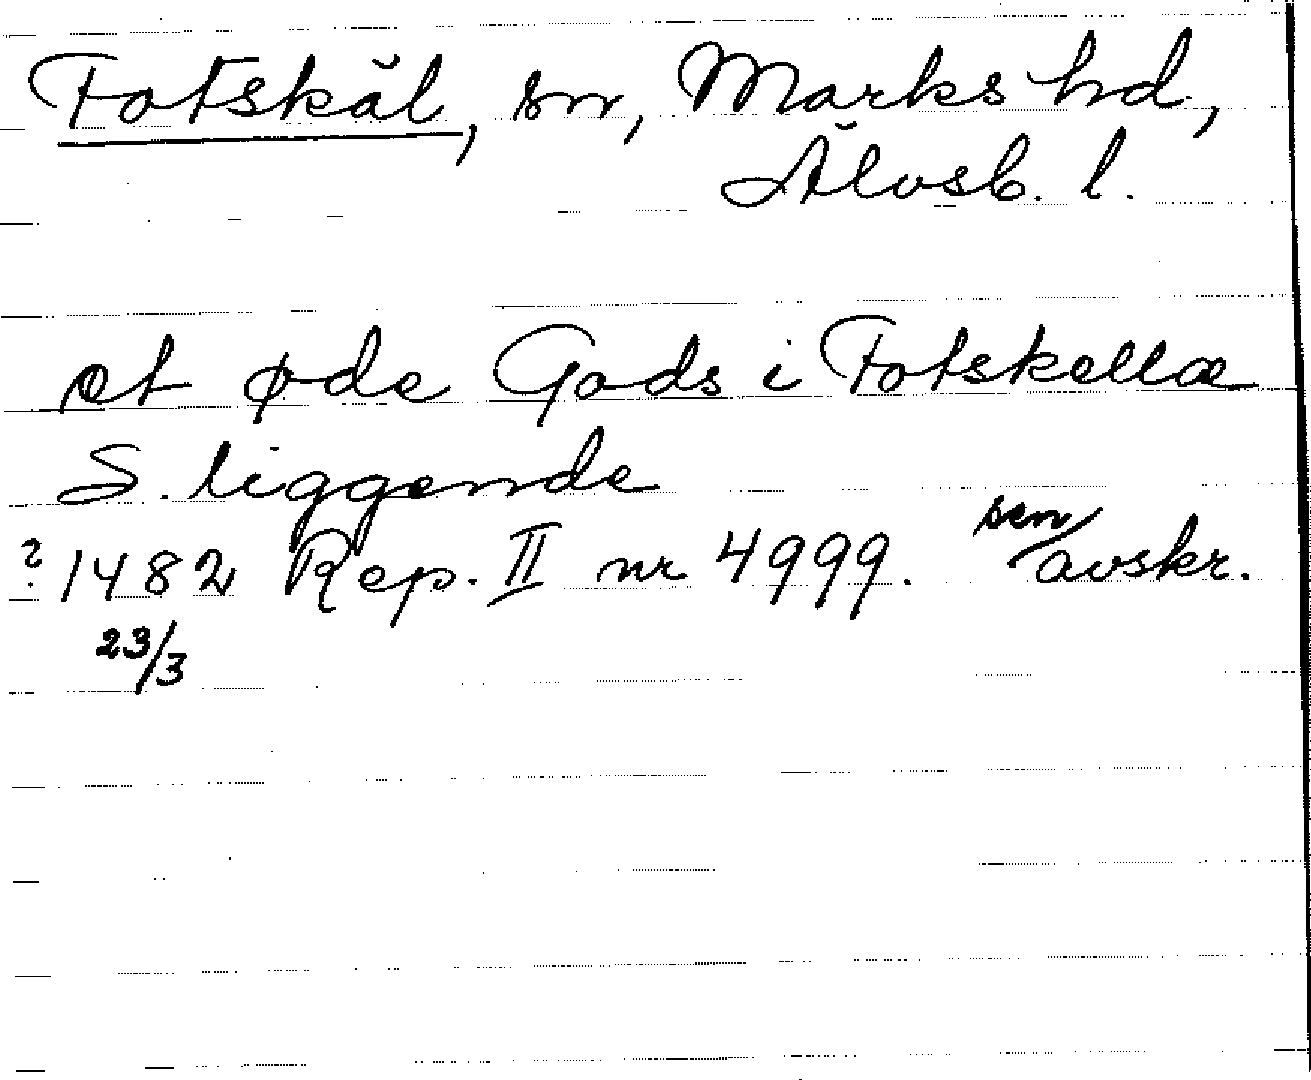 Fotskäl, sn, Marks hd,
Älvsb. l.
et øde Gods i Fotskellæ
S. liggende
? 1482 Rep. II nr 4999. sen avskr.
23/3